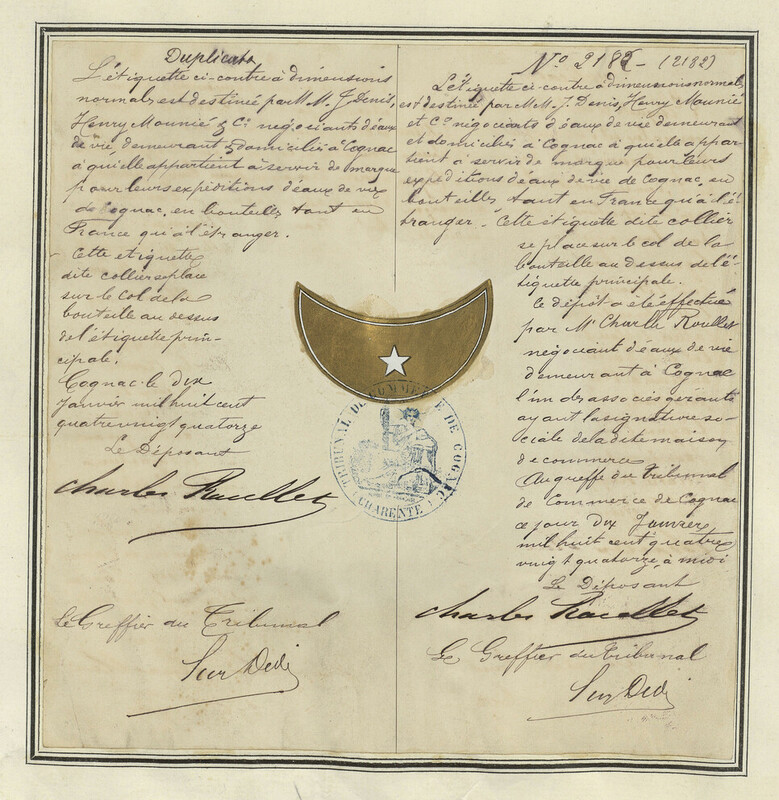 Duplicata
L'étiquette ci-contre à dimensions
normales est destinée par M.M. J. Denis,
Henry Mounié & Cie négociants d'eaux
de vie demeurant & domiciliés à Cognac
à qu'elle appartient à servir de marque
pour leurs expéditions d'eaux de vie
de Cognac, en bouteilles tant en
France qu'à l'étranger.
Cette etiquette
dite collier se place
sur le Col de la
bouteille au dessus
de l'étiquette prin-
cipale.
Cognac le dix
Janvier mil huit cent
quatre vingt quatorze
Le Déposant
Charles Roullet
Le Greffier du Tribunal
No 2182 - (2182)
L'étiquette ci-contre à dimensions normales,
est destinée par M.M. J. Denis, Henry Mounié
et Co négociants d'eaux de vie demeurant
et domiciliés à Cognac à qu'elle appar-
tient à servir de marque pour leurs
expéditions d'eaux de vie de Cognac, en
bouteilles tant en France qu'à l'é-
tranger. Cette étiquette dite collier
se place sur le col de la
bouteille au dessus de l'é-
tiquette principale.
Ce dépôt a été effectué
par Mr Charles Roullet
négociant d'eaux de vie
demeurant à Cognac
l'un des associés gérants
ayant la signature so-
ciale de la dite maison
de commerce
Au greffe du tribunal
de Commerce de Cognac
ce jour Dix Janvier
mil huit cent quatre
vingt quatorze, à midi
Le Déposant
Charles Roullet
Le Greffier du tribunal
TRIBUNAL DE COMMERCE DE COGNAC
(CHARENTE)